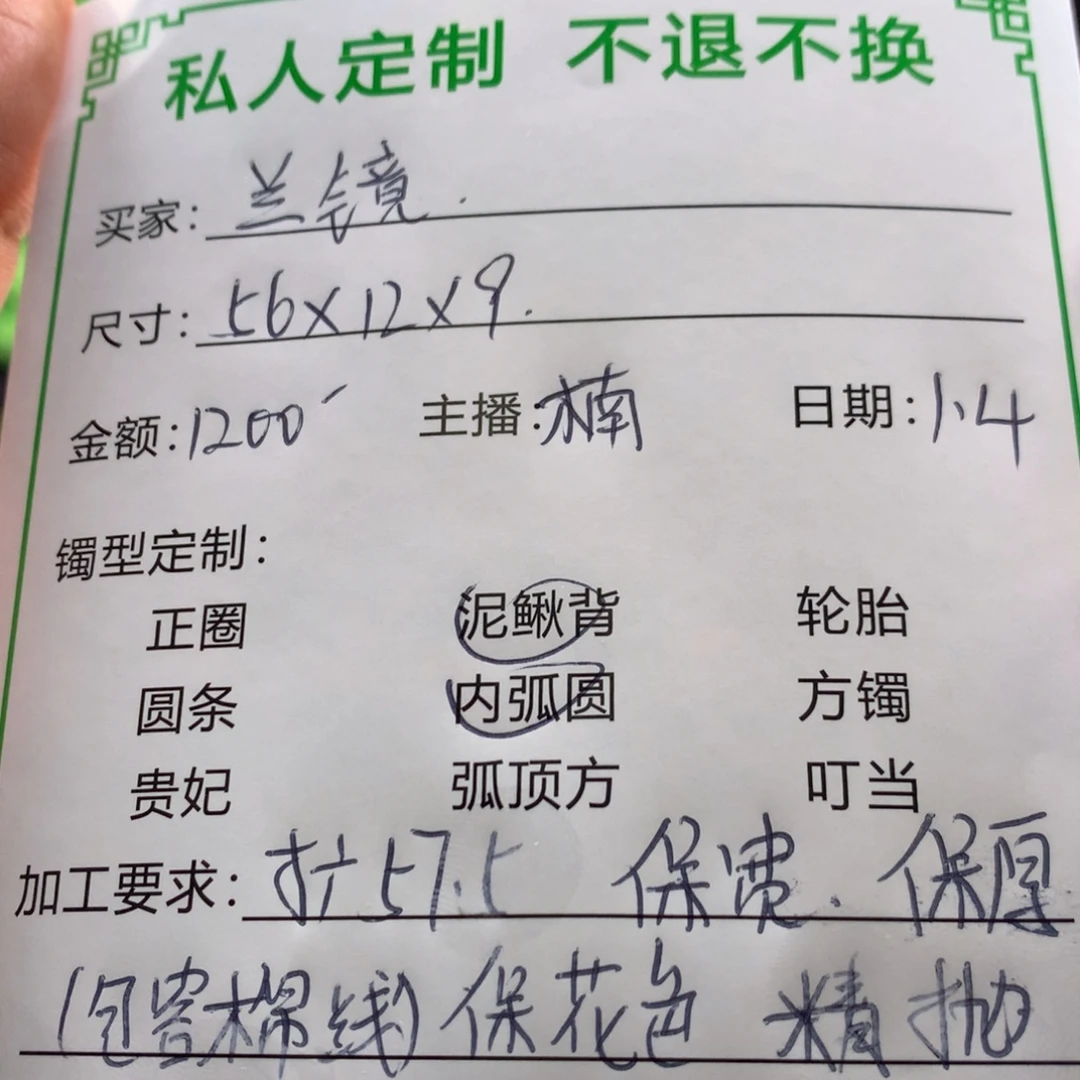 私人定制 不退不换
买家: 兰镜.
尺寸: 56×12×9.
金额:1200 主播:楠 日期:1.4
镯型定制:
正圈 泥鳅背 轮胎
圆条 内弧圆 方镯
贵妃 弧顶方 叮当
加工要求: 扩57.5 保宽. 保厚
(包容棉线) 保花色 精抛